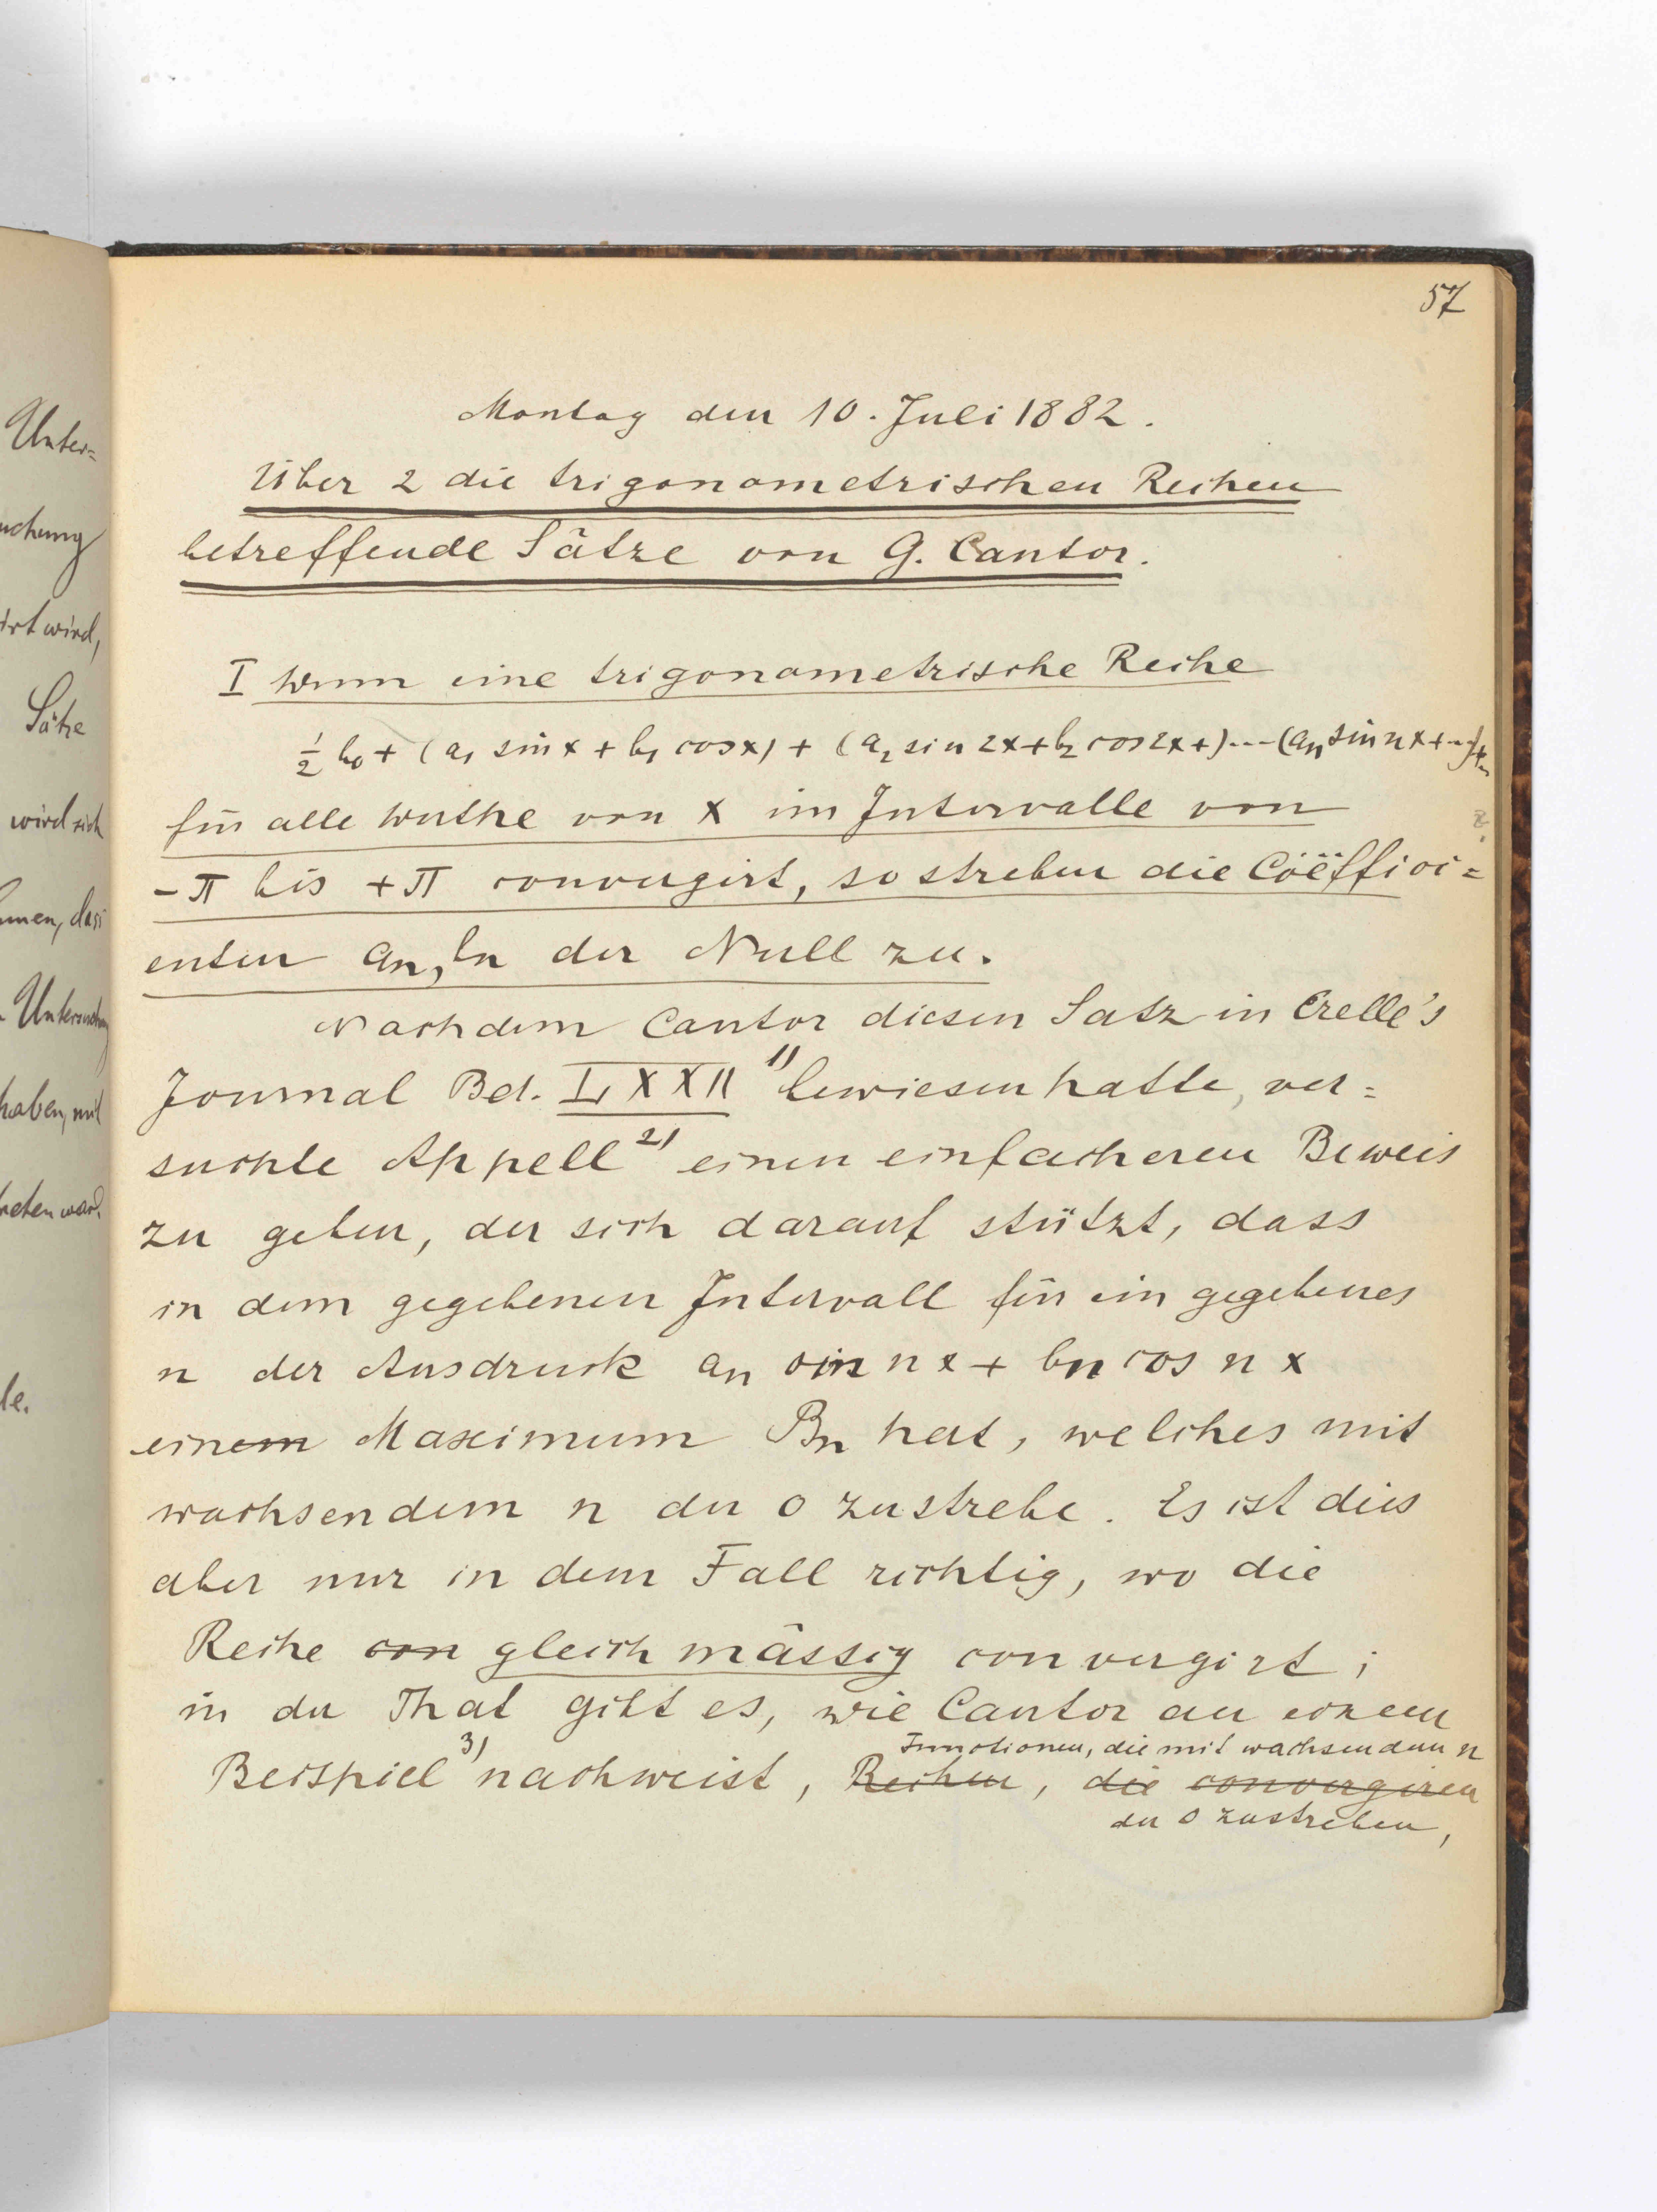 57
Montag den 10. Juli 1882.
Über 2 die trigonometrischen Reihen
betreffende Sätze von G. Cantor.
I Wenn eine trigonometrische Reihe
½ b₀ + (a₁ sin x + b₁ cos x) + (a₂ sin 2x + b₂ cos 2x +) --- (aₙ sin n x + --)+
für alle Werthe von x im Intervalle von
-π bis +π convergirt, so streben die Coëffici=
enten aₙ, bₙ der Null zu.
Nachdem Cantor diesen Satz in Crelle's
Journal Bd. LXXII ¹⁾ bewiesen hatte, ver=
suchte Appell ²⁾ einen einfacheren Beweis
zu geben, der sich darauf stützt, dass
in dem gegebenen Intervall für ein gegebenes
n der Ausdruck aₙ sin n x + bₙ cos n x
einem Maximum Bₙ hat, welches mit
wachsendem n der 0 zustrebe. Es ist dies
aber nur in dem Fall richtig, wo die
Reihe con gleichmässig convergirt;
in der That gibt es, wie Cantor an einem
Functionen, die mit wachsendem n
Beispiel ³⁾ nachweist, Reihen, die convergiren
der 0 zustreben,
Unter=
uchung
irt wird,
Sätze
wird sich
men, dass
haben, mit
reten war.
le.